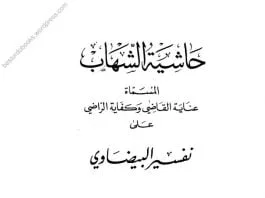 حاشية الشهاب
المسماة
عناية القاضي وكفاية الراضي
على
تفسير البيضاوي